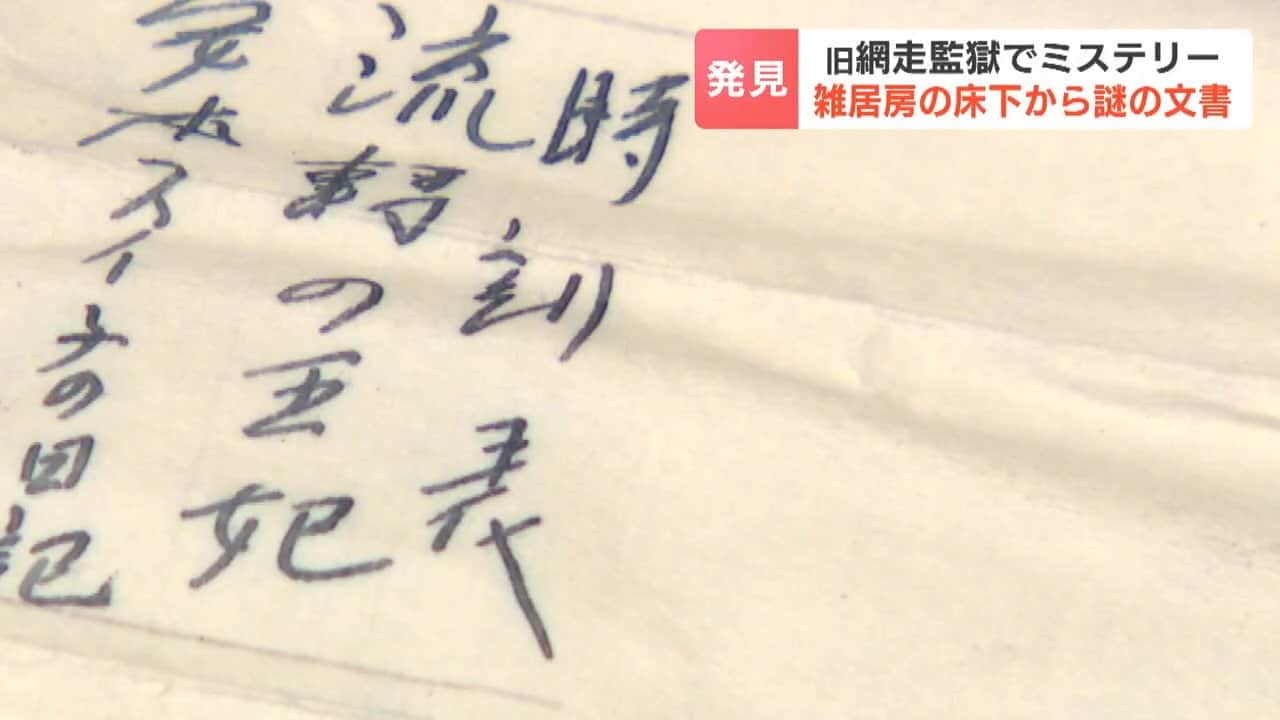 発見
旧網走監獄でミステリー
雑居房の床下から謎の文書
時刻表
流轉の王妃
安本スイ子の日記